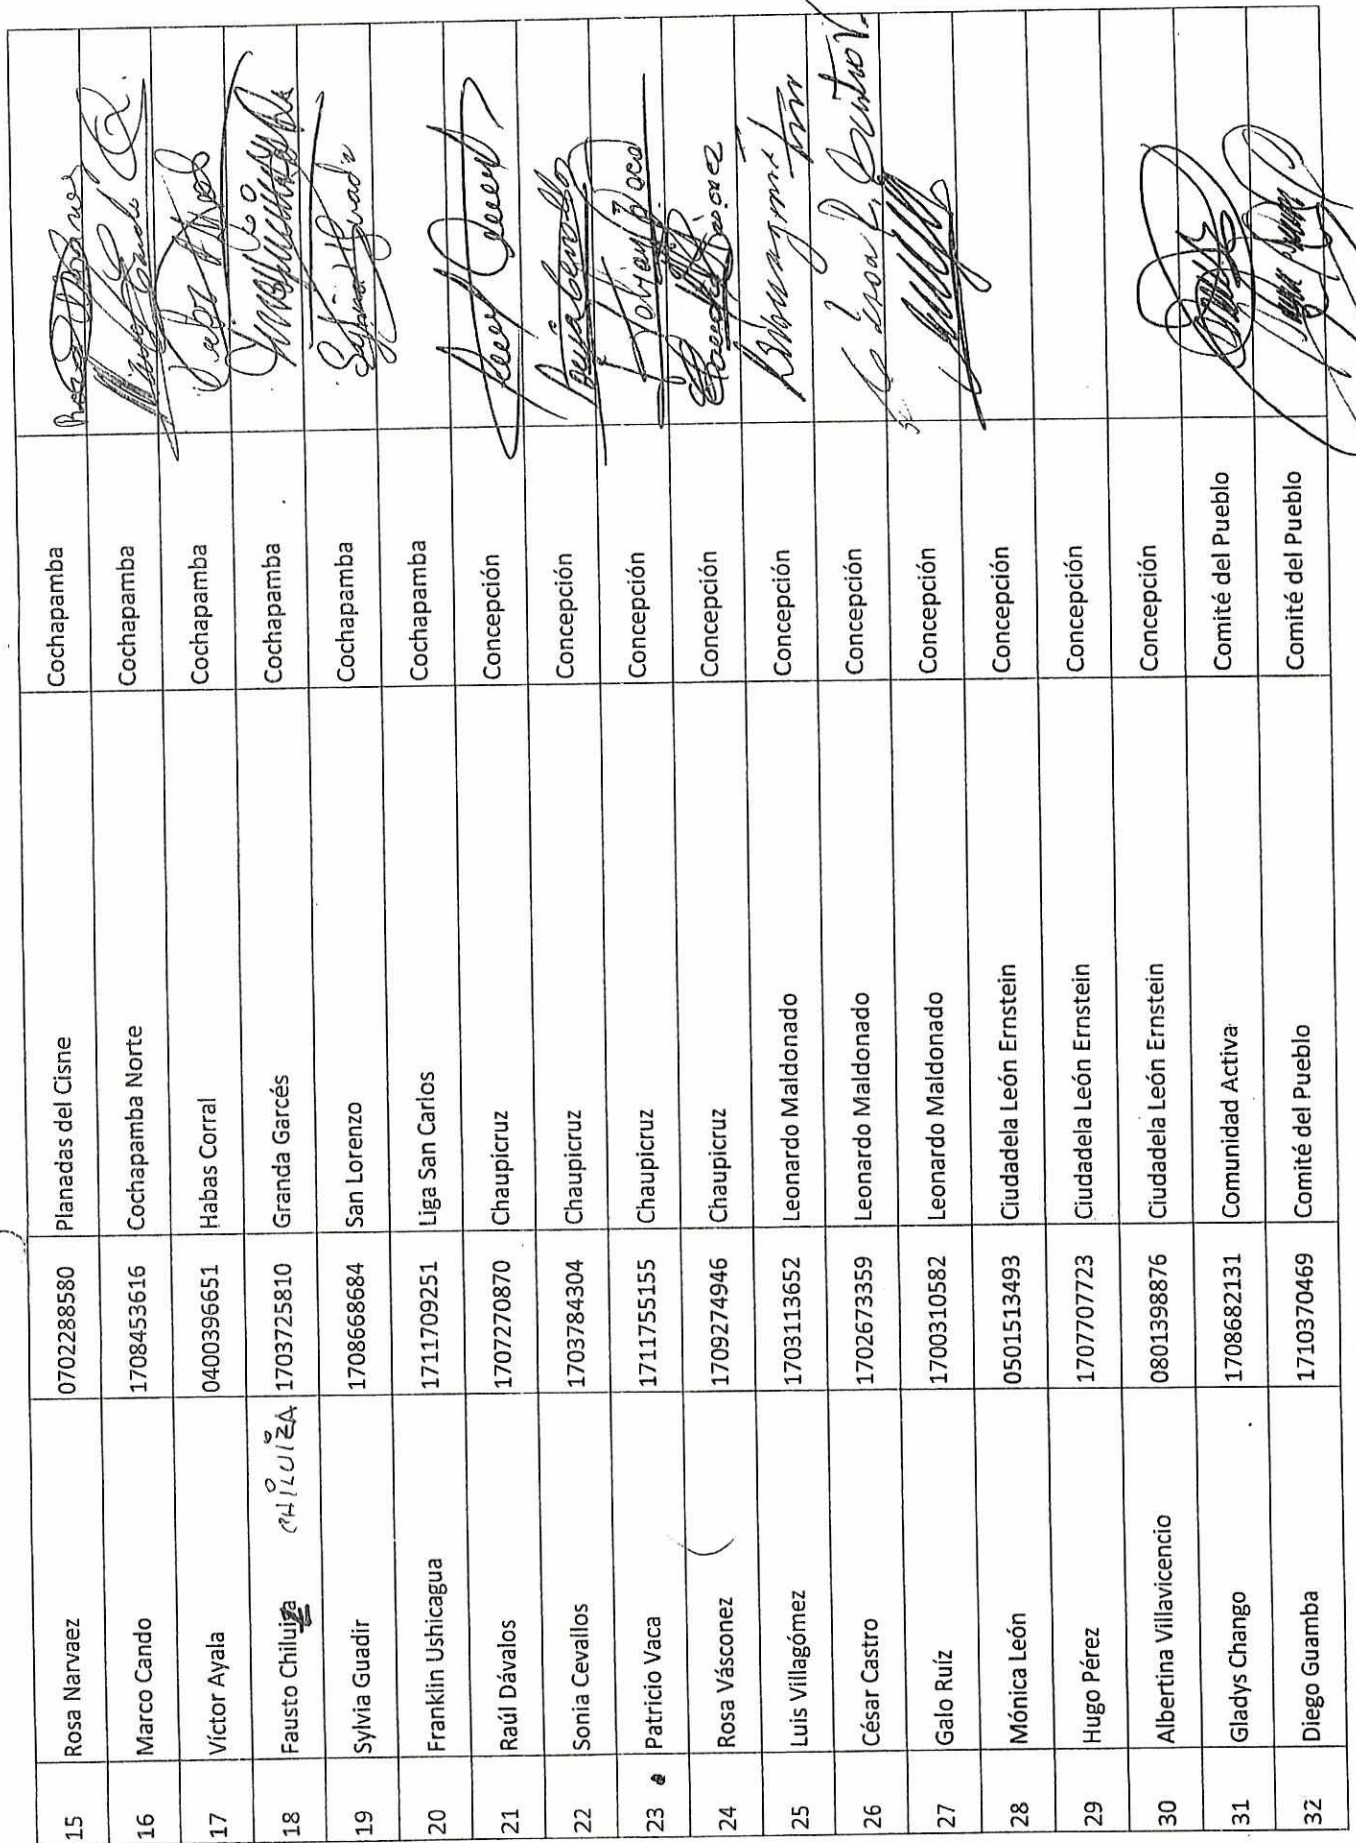 15 Rosa Narvaez 0702288580 Planadas del Cisne Cochapamba
16 Marco Cando 1708453616 Cochapamba Norte Cochapamba
17 Víctor Ayala 0400396651 Habas Corral Cochapamba
18 Fausto Chiluiza CHILUIZA 1703725810 Granda Garcés Cochapamba
19 Sylvia Guadir 1708668684 San Lorenzo Cochapamba
20 Franklin Ushicagua 1711709251 Liga San Carlos Cochapamba
21 Raúl Dávalos 1707270870 Chaupicruz Concepción
22 Sonia Cevallos 1703784304 Chaupicruz Concepción
23 Patricio Vaca 1711755155 Chaupicruz Concepción
24 Rosa Vásconez 1709274946 Chaupicruz Concepción
25 Luis Villagómez 1703113652 Leonardo Maldonado Concepción
26 César Castro 1702673359 Leonardo Maldonado Concepción
27 Galo Ruíz 1700310582 Leonardo Maldonado Concepción
28 Mónica León 0501513493 Ciudadela León Ernstein Concepción
29 Hugo Pérez 1707707723 Ciudadela León Ernstein Concepción
30 Albertina Villavicencio 0801398876 Ciudadela León Ernstein Concepción
31 Gladys Chango 1708682131 Comunidad Activa Comité del Pueblo
32 Diego Guamba 1710370469 Comité del Pueblo Comité del Pueblo